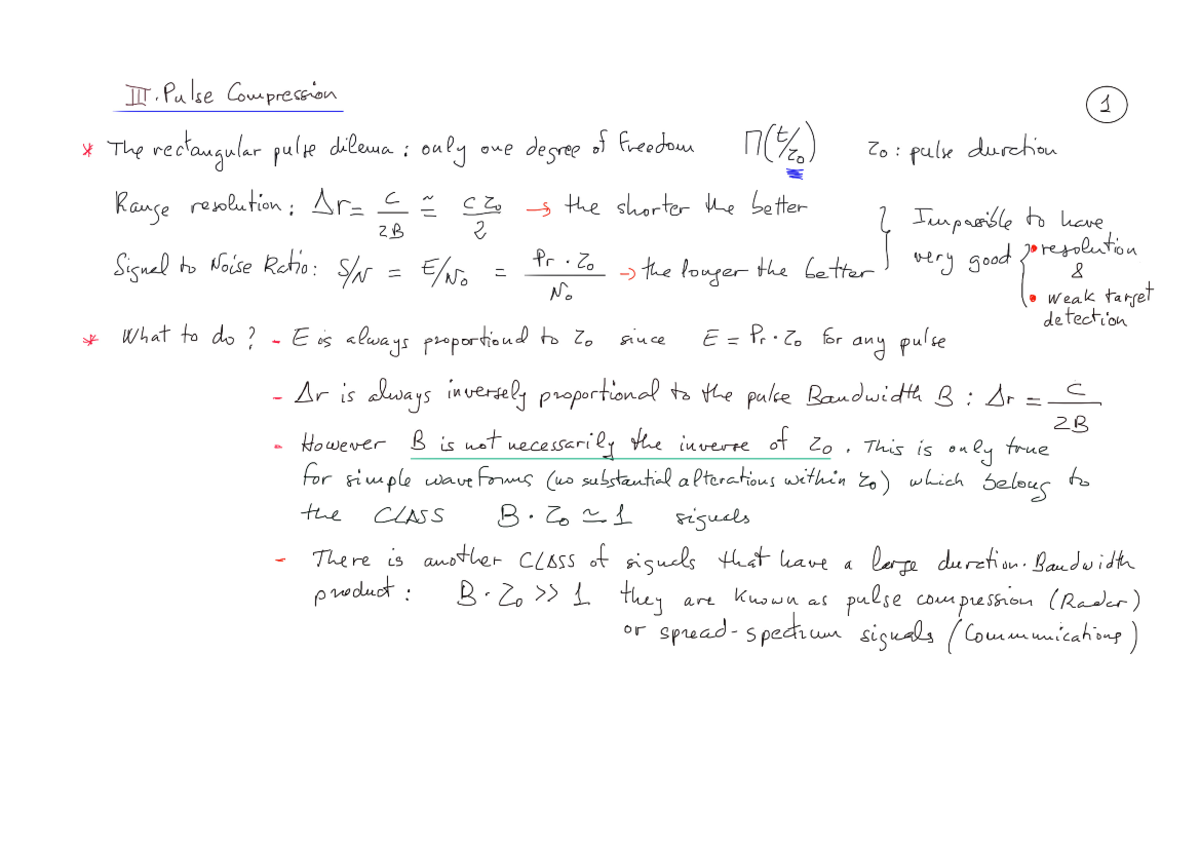 III. Pulse Compression
1
* The rectangular pulse dilema : only one degree of Freedom Π(t/τ₀) τ₀ : pulse duration
Range resolution : Δr = c/2B ≅ cτ₀/2 → the shorter the better
Signal to Noise Ratio : S/N = E/N₀ = Pr · τ₀/N₀ → the longer the better
} Impossible to have
very good { • resolution
&
• weak target
detection
* What to do ? - E is always proportional to τ₀ since E = Pr · τ₀ for any pulse
- Δr is always inversely proportional to the pulse Bandwidth B : Δr = c/2B
- However B is not necessarily the inverse of τ₀ . This is only true
for simple waveforms (no substantial alterations within τ₀) which belong to
the CLASS B · τ₀ ≃ 1 signals
- There is another CLASS of signals that have a large duration · Bandwidth
product : B · τ₀ >> 1 they are known as pulse compression (Radar)
or spread-spectrum signals (Communications)